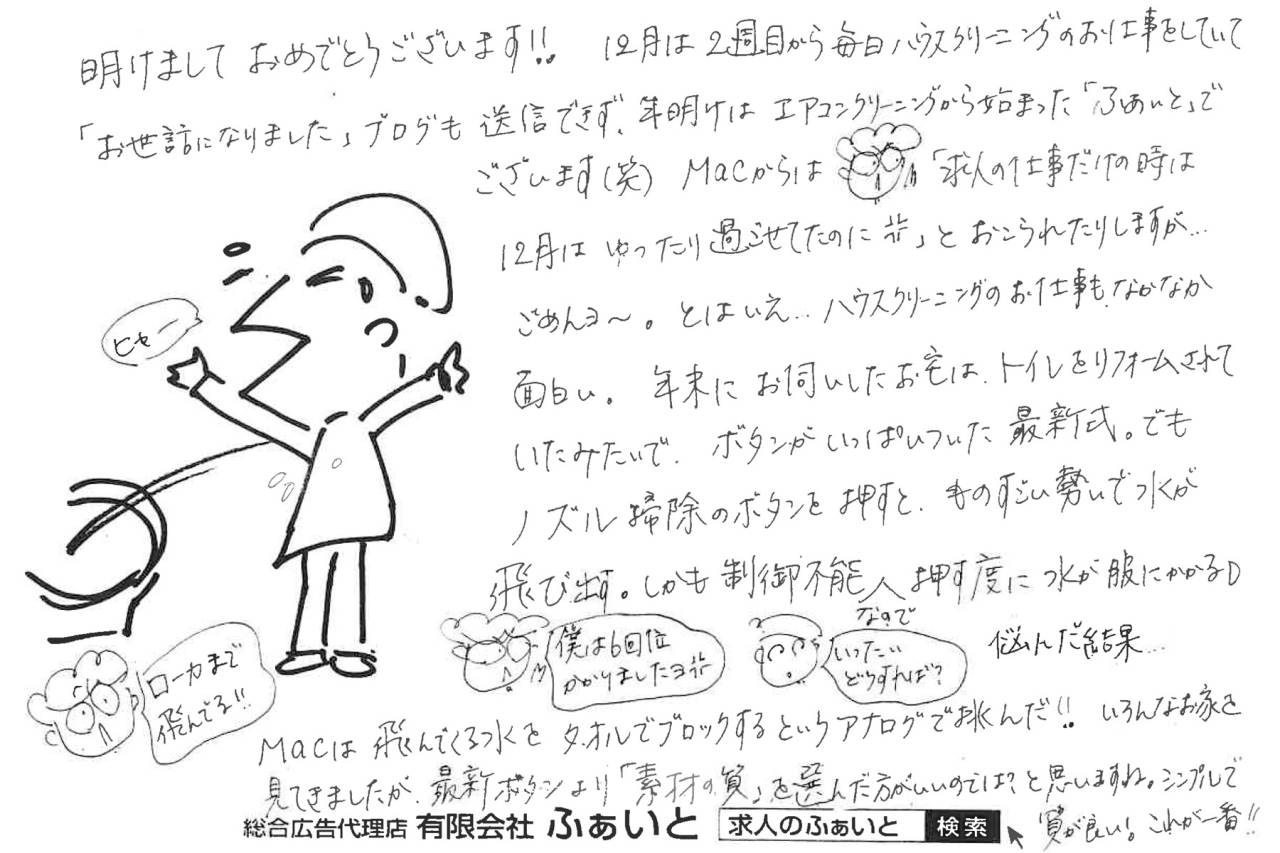 明けまして おめでとうございます!! 12月は2週目から毎日ハウスクリーニングのお仕事をしていて
「お世話になりました」ブログも 送信できず、年明けは エアコンクリーニングから始まった「ふぁいと」で
ございます(笑) Macからは 「求人の仕事だけの時は
12月は ゆったり過ごせてたのに」と おこられたりしますが…
ごめんヨ〜。とはいえ… ハウスクリーニングのお仕事も、なかなか
面白い。 年末に お伺いしたお宅は、トイレをリフォームされて
いたみたいで、ボタンがいっぱいついた 最新式。でも
ノズル掃除のボタンを 押すと、ものすごい勢いで水が
飛び出す。しかも 制御不能 押す度に 水が服にかかる
ヒャー
ローカまで
飛んでる!!
僕は6回位
かかりましたヨ
なので
いったい
どうすれば?
悩んだ結果…
Macは 飛んでくる水を タオルでブロックするというアナログで挑んだ!! いろんなお家を
見てきましたが、最新ボタンより「素材の質」を選んだ方がいいのでは?と思いますね。シンプルで
質が良い!これが一番!!
総合広告代理店 有限会社 ふぁいと 求人のふぁいと 検索